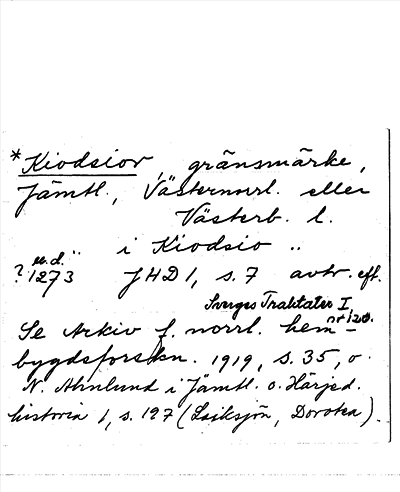 *Kiodsiov, gränsmärke,
Jämtl., Västernorrl. eller
Västerb. l.
u.d. " i Kiodsio "
? 1273 JHD 1, s. 7 avtr. eft.
Sveriges Traktater I
nr 120.
Se Arkiv f. norrl. hem-
bygdsforskn. 1919, s. 35, o.
N. Ahnlund i Jämtl. o. Härjed.
historia 1, s. 127 (Laiksjön, Dorotea).